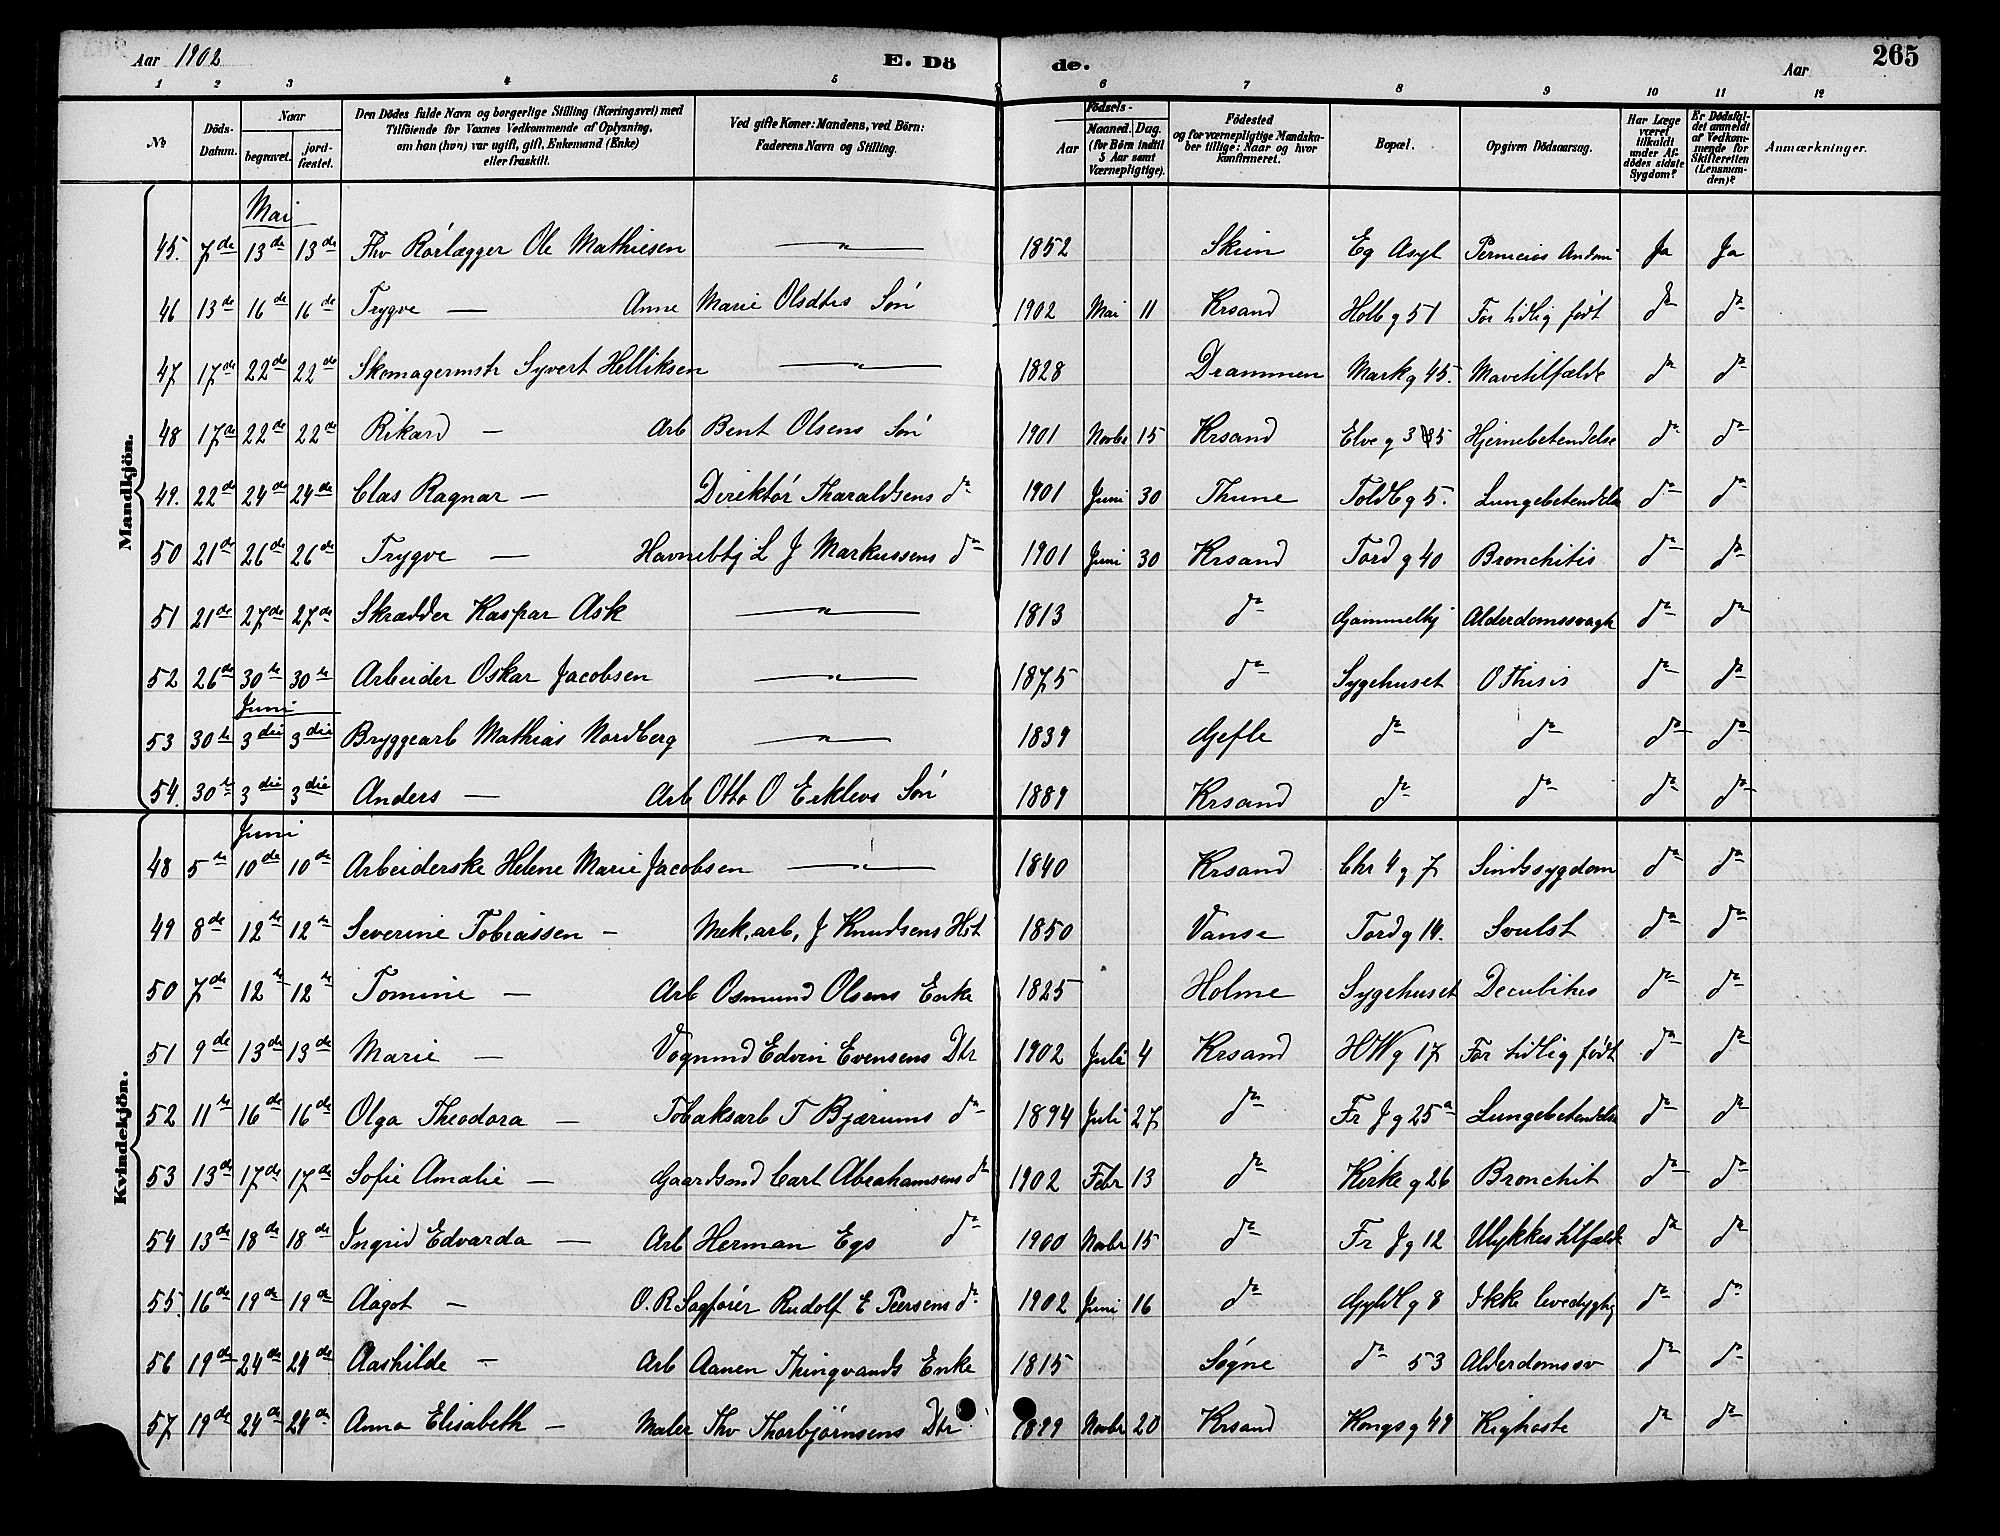 Aar 1902 E. Dö de. Aar 265
1 2 3 4 5 6 7 8 9 10 11 12
No Döds-Datum. Naar begravet. jord-fæstet. Den Dödes fulde Navn og borgerlige Stilling (Næringsvei) med Tilföiende for Voxnes Vedkommende af Oplysning, om han (hun) var ugift, gift, Enkemand (Enke) eller fraskilt. Ved gifte Koner: Mandens, ved Börn: Faderens Navn og Stilling. Födsels- Aar Maaned. Dag. (for Börn indtil 5 Aar samt Værnepligtige). Födested og for værnepligtige Mandska-ber tillige: Naar og hvor konfirmeret. Bopæl. Opgiven Dödsaarsag. Har Læge været tilkaldt under Af-dödes sidste Sygdom? Er Dödsfal-det anmeldt af Vedkom-mende for Skifteretten (Lensman-den)? Anmærkninger.
Mandkjön.
Mai
45. 7de 13de 13de Thv Rörlægger Ole Mathiesen — " — 1852 Skien Eg Asyl Ja Ja
46 13de 16de 16de Trygve — Anne Marie Olsdtrs Sön 1902 Mai 11 Krsand Holb g 51 For tidlig födt do do
47 17de 22de 22de Skomagermstr Syvert Helliksen — " — 1828 Drammen Mark g 45. Mavetilfælde do do
48 17de 22de 22de Rikard — Arb Bent Olsens Sön 1901 Novbr 15 Krsand Elve g Hjernebetendelse do do
49. 22de 24de 24de Clas Ragnar — Direktör Tharaldsens do 1901 Juni 30 Thune Toldb g 5. Lungebetendelse do do
50 21de 26de 26de Trygve — Havnebtj L J Markussens do 1901 Juni 30 Krsand Tord g 40 Bronchitis do do
51 21de 27de 27de Skrædder Kaspar Ask — " — 1813 do Gammelhj Alderdomssvagh do do
52 26de 30te 30te Arbeider Oskar Jacobsen — " — 1875 do Sygehuset do do
Juni
53 30te 3die 3die Bryggearb Mathias Nordberg — " — 1839 Gefle do do do do
54. 30te 3die 3die Anders — Arb Otto O Erklevs Sön 1889 Krsand do do do do
Kvindekjön.
Juni
48 5te 10de 10de Arbeiderske Helene Marie Jacobsen — " — 1840 Krsand Chr 4 g 7 Sindssygdom do do
49 8de 12te 12te Severine Tobiassen — Mek. arb. J Knudsens Hst 1850 Vanse Tord g 14. Svulst do do
50 7de 12te 12te Tomine — Arb Osmund Olsens Enke 1825 Holme Sygehuset Decubitus do do
51 9de 13de 13de Marie — Vognmd Edvin Evensens Dtr 1902 Juli 4 Krsand HW g 17 For tidlig födt do do
52 11te 16de 16de Olga Theodora — Tobaksarb T Bjærums do 1894 Juli 27 do Fr J g 25a Lungebetendelse do do
53 13de 17de 17de Sofie Amalie — Gaardsmd Carl Abrahamsens do 1902 Febr 13 do Kirke g 26 Bronchit do do
54 13de 18de 18de Ingrid Edvarda — Arb Herman Egs do 1900 Novbr 15 do Fr J g 12 Ulykkestilfælde do do
55. 16de 19de 19de Aagot — O. R Sagförer Rudolf E Peersens do 1902 Juni 16 do Gyldl g 8 Ikke levedygtig do do
56 19de 24de 24de Aashilde — Arb Aanen Thingvands Enke 1815 Søgne do 53 Alderdomssv do do
57 19de 24de 24de Anna Elisabeth — Maler Thv Thorbjörnsens Dtr 1899 Novbr 20 Krsand Kongs g 49 Kighoste do do